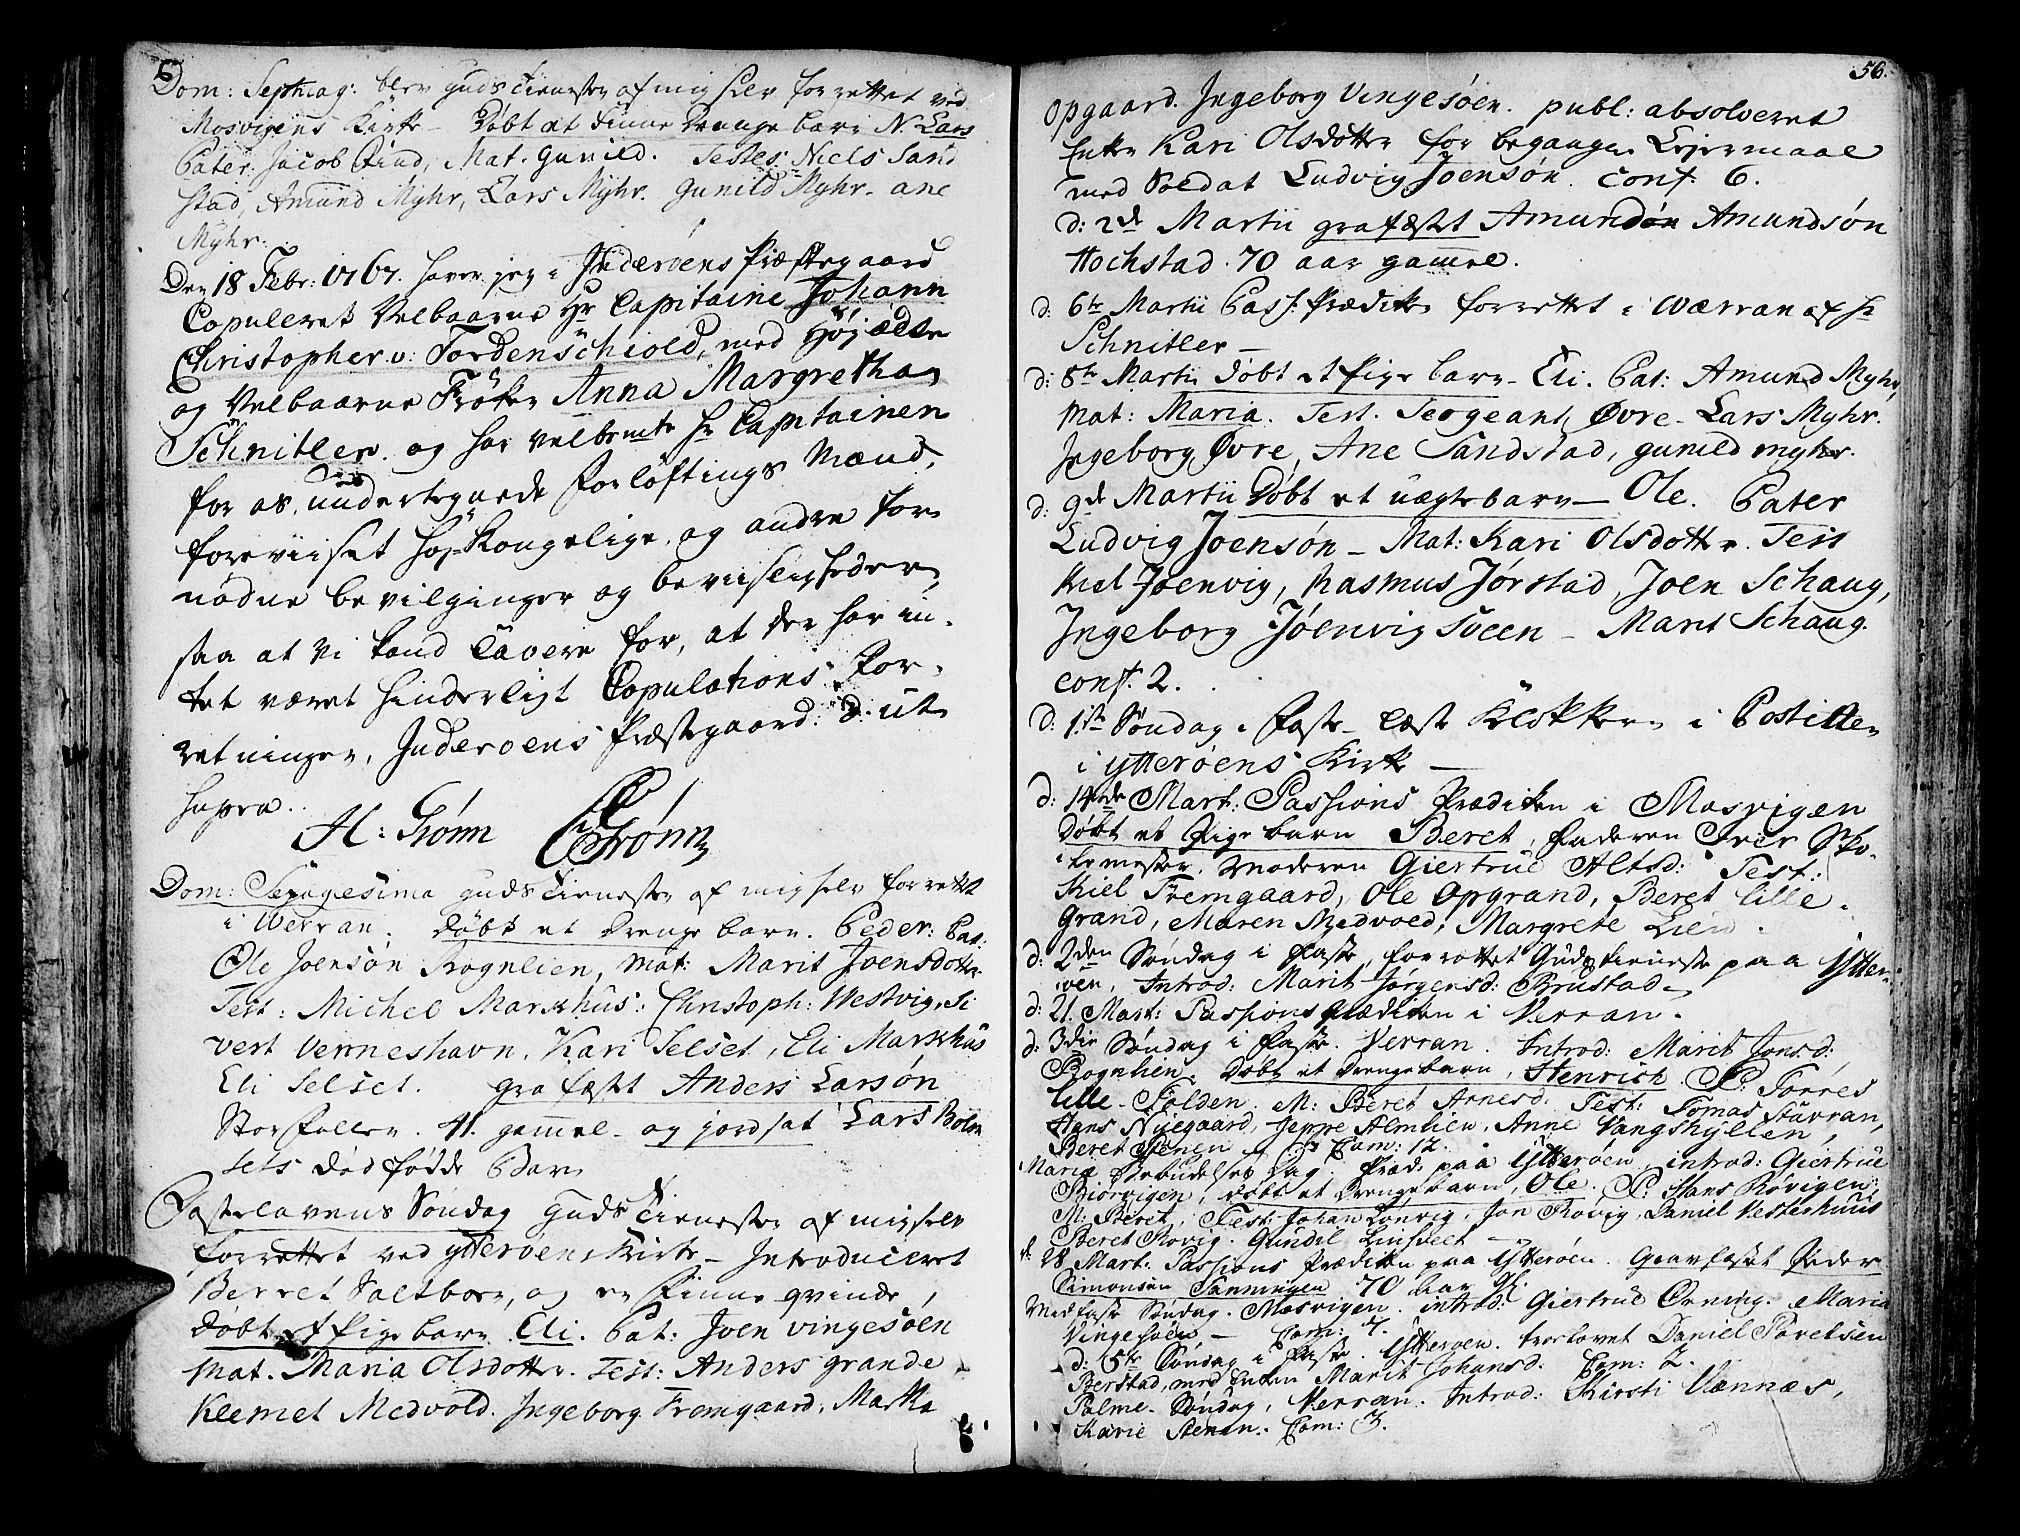 Dom: Septuag: blev guds tieneste af mig selv forrettet ved
Mosvigens Kirke – Døbt et Finne Drenge barn N. Lars
Pater: Jacob Find, Mat. Gunild. Testes: Niels Sand
stad, Amund Myhr, Lars Myhr. Gunild Myhr. ane
Myhr.
Den 18 Febr: 1767. haver jeg i Inderøens Præstegaard
Copuleret Velbaarne Hr Capitaine Johann
Christopher v: Tordenschiold, med Højædle
og Velbaarne Frøken Anna Margretha
Schnitler. og har velbemte Hr Capitainen
for os, undertegnede Forløftings Mænd,
foreviiset Høj-Kongelige, og andre for
nødne bevilginger og beviisligheder,
saa at vi kand Cavere for, at der har in-
tet været hinderligt Copulations For-
retningen, Inderoens Præstegaard: d: ut
supra.
H: Trønn Trønn
Dom: Sexagesima guds tieneste af mig selv forrettet
i Werran. døbt et Drenge barn. Peder: Pat:
Ole Joensøn Rognlien, Mat: Marit Joensdotter
Test: Michel Markhus: Christoph: Westvig, Si
vert Verrneshavn, Kari Selset, Eli Markhus
Eli Selset. grafæstet Anders Larsøn
Storfallen. 41. gammel – og jordsat Lars Bolm
sets død fødde Barn
Fastelavens Søndag guds tieneste af mig selv
forrettet ved ytterøens Kirke – Introduceret
Berret Saltbore, og en Finne qvinde,
døbt et Pige barn Eli. Pat: Joen vingesøen
Mat. Maria Olsdotter. Test: Anders grande
Klemet Medvold. Ingeborg Fremgaard, Martha
56.
Opgaard. Ingeborg Vingesøen. publ: absolveret
Enken Kari Olsdotter for begangen Lejermaal
med Soldat Ludvig Joensøn. conf. 6.
d: 2de Martii grafæstet Amund Amundsøn
Hochstad. 70 aar gammel.
d. 6te Martii Pass: Prædiken forrettet i Wærran af hr
Schnitler –
d: 8te Martii døbt et Pige barn – Eli. Pat: Amund Myhr,
Mat: Maria. Test. Sergeant Øvre – Lars Myhr.
Ingeborg Øvre, Ane Sandstad, gunild myhr.
d: 9de Martii Døbt et uægte barn – Ole. Pater
Ludvig Joensøn – Mat: Kari Olsdotter. Test
Kiel Joenvig, Rasmus Jørstad, Joen Schaug,
Ingeborg Jøenvig Sveen – Marit Schaug.
conf. 2.
d. 1ste Søndag i Faste læste Klokkeren i Postillen
i ytterøens Kirke –
d: 14de Mart: Passions Prædiken i Mosvigen
døbt et Pige barn Beret, Faderen Iver Sko-
lemester. Moderen Giertrud Altsd: Test:
Kiel Fremgaard, Ole Opgrand, Beret lille-
Grand, Maren Medvold, Margrete Lien.
d: 2den Søndag i Faste, forrettet Guds tieneste paa Ytter-
øen, Introd: Marit Jørgensd: Brustad –
d: 21. Mart: Passions Prædiken i Verran.
d: 3die Søndag i Faste. Verran. Introd: Marit Jonsd:
Rognlien. døbt et Drengebarn, Henrich. P: Torres
lille-Folden. M: Beret Arnesd. Test: Tomas Stavran,
Hans Nyegaard, Jeppe Almlien, Anne Vangshyllen,
Beret Stenen – Com: 12.
Mariæ Bebudelses Dag. Præd: paa Ytterøen, introd: Giertrud
Biørvigen, døbt et Drengebarn, Ole. P: Hans Røvigen,
M: Beret, Test: Johan Lønvig, Jon Rovig, Daniel Vesterhuus
Beret Rovig. Gundil Linsveet –
d. 28 Mart: Passions Prædiken paa Ytterøen. Gravfæstet Peder
Simonsen Sanningen 70 aar gl.
Midfaste Søndag. Mosvigen. introd: GiertrudØrning. Maria
Vingesøen – Com: 7.
d: 5te Søndag i Faste. Ytterøen. troelovet Daniel Paretsen
Berstad, med Enken Marit Johansd. Com: 2.
Palme- Søndag, Verran. Introd: Kirsti Vennæs,
Karie Stenen. Com: 3.